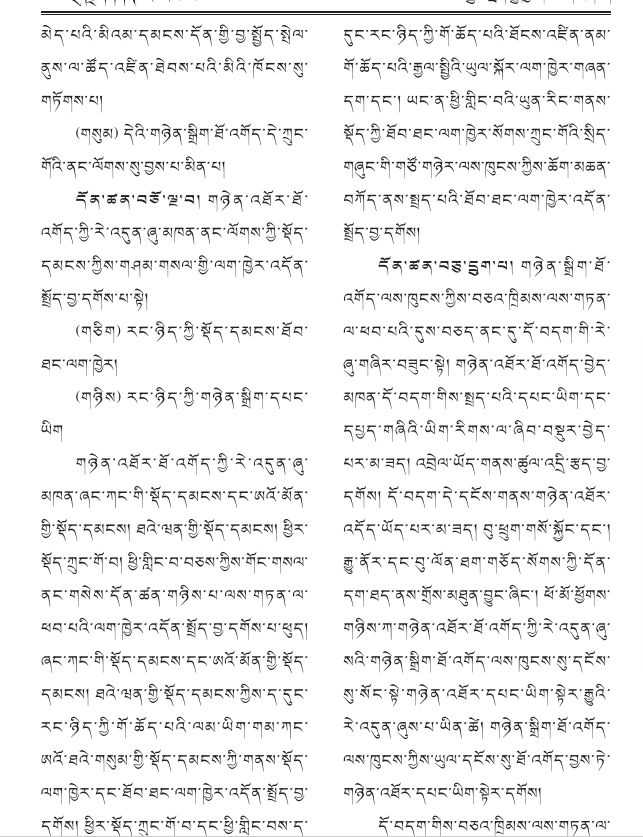 མེད་པའི་མིའམ་དམངས་དོན་གྱི་བྱ་སྤྱོད་སྤེལ་
ནུས་ལ་ཚོད་འཛིན་ཐེབས་པའི་མིའི་ཁོངས་སུ་
གཏོགས་པ།
(གསུམ) དེའི་གཉེན་སྒྲིག་ཐོ་འགོད་དེ་ཀྲུང་
གོའི་ནང་ལོགས་སུ་བྱས་པ་མིན་པ།
དོན་ཚན་བཅོ་ལྔ་བ། གཉེན་འཐོར་ཐོ་
འགོད་ཀྱི་རེ་འདུན་ཞུ་མཁན་ནང་ལོགས་ཀྱི་སྡོད་
དམངས་ཀྱིས་གཤམ་གསལ་གྱི་ལག་ཁྱེར་འདོན་
སྤྲོད་བྱ་དགོས་པ་སྟེ།
(གཅིག) རང་ཉིད་ཀྱི་སྡོད་དམངས་ཐོབ་
ཐང་ལག་ཁྱེར།
(གཉིས) རང་ཉིད་ཀྱི་གཉེན་སྒྲིག་དཔང་
ཡིག
གཉེན་འཐོར་ཐོ་འགོད་ཀྱི་རེ་འདུན་ཞུ་
མཁན་ཞང་ཀང་གི་སྡོད་དམངས་དང་ཨའོ་མོན་
གྱི་སྡོད་དམངས། ཐའེ་ཝན་གྱི་སྡོད་དམངས། ཕྱིར་
སྡོད་ཀྲུང་གོ་བ། ཕྱི་གླིང་བ་བཅས་ཀྱིས་གོང་གསལ་
ནང་གསེས་དོན་ཚན་གཉིས་པ་ལས་གཏན་ལ་
ཕབ་པའི་ལག་ཁྱེར་འདོན་སྤྲོད་བྱ་དགོས་པ་ཕུད།
ཞང་ཀང་གི་སྡོད་དམངས་དང་ཨའོ་མོན་གྱི་སྡོད་
དམངས། ཐའེ་ཝན་གྱི་སྡོད་དམངས་ཀྱིས་ད་དུང་
རང་ཉིད་ཀྱི་གོ་ཆོད་པའི་ལམ་ཡིག་གམ་ཀང་
ཨའོ་ཐའེ་གསུམ་གྱི་སྡོད་དམངས་ཀྱི་གནས་སྡོད་
ལག་ཁྱེར་དང་ཐོབ་ཐང་ལག་ཁྱེར་འདོན་སྤྲོད་བྱ་
དགོས། ཕྱིར་སྡོད་ཀྲུང་གོ་བ་དང་ཕྱི་གླིང་བས་ད་
དུང་རང་ཉིད་ཀྱི་གོ་ཆོད་པའི་ཐོངས་འཛིན་ནམ་
གོ་ཆོད་པའི་རྒྱལ་སྤྱིའི་ཡུལ་སྐོར་ལག་ཁྱེར་གཞན་
དག་དང་། ཡང་ན་ཕྱི་གླིང་བའི་ཡུན་རིང་གནས་
སྡོད་ཀྱི་ཐོབ་ཐང་ལག་ཁྱེར་སོགས་ཀྲུང་གོའི་སྲིད་
གཞུང་གི་གཙོ་གཉེར་ལས་ཁུངས་ཀྱིས་ཆོག་མཆན་
བཀོད་ནས་སྤྲད་པའི་ཐོབ་ཐང་ལག་ཁྱེར་འདོན་
སྤྲོད་བྱ་དགོས།
དོན་ཚན་བཅུ་དྲུག་པ། གཉེན་སྒྲིག་ཐོ་
འགོད་ལས་ཁུངས་ཀྱིས་བཅའ་ཁྲིམས་ལས་གཏན་
ལ་ཕབ་པའི་དུས་བཅད་ནང་དུ་དོ་བདག་གི་རེ་
ཞུ་གཞིར་བཟུང་སྟེ། གཉེན་འཐོར་ཐོ་འགོད་བྱེད་
མཁན་དོ་བདག་གིས་སྤྲད་པའི་དཔང་ཡིག་དང་
དཔྱད་གཞིའི་ཡིག་རིགས་ལ་ཞིབ་བསྡུར་བྱེད་
པར་མ་ཟད། འབྲེལ་ཡོད་གནས་ཚུལ་འདྲི་རྩད་བྱ་
དགོས། དོ་བདག་དེ་དངོས་གནས་གཉེན་འཐོར་
འདོད་ཡོད་པར་མ་ཟད། བུ་ཕྲུག་གསོ་སྐྱོང་དང་།
རྒྱུ་ནོར་དང་བུ་ལོན་ཐག་གཅོད་སོགས་ཀྱི་དོན་
དག་ཐད་ནས་གྲོས་མཐུན་བྱུང་ཞིང་། ཕོ་མོ་ཕྱོགས་
གཉིས་ཀ་གཉེན་འཐོར་ཐོ་འགོད་ཀྱི་རེ་འདུན་ཞུ་
སའི་གཉེན་སྒྲིག་ཐོ་འགོད་ལས་ཁུངས་སུ་དངོས་
སུ་སོང་སྟེ་གཉེན་འཐོར་དཔང་ཡིག་སྟེར་རྒྱུའི་
རེ་འདུན་ཞུས་པ་ཡིན་ཚེ། གཉེན་སྒྲིག་ཐོ་འགོད་
ལས་ཁུངས་ཀྱིས་ཡུལ་དངོས་སུ་ཐོ་འགོད་བྱས་ཏེ་
གཉེན་འཐོར་དཔང་ཡིག་སྟེར་དགོས།
དོ་བདག་གིས་བཅའ་ཁྲིམས་ལས་གཏན་ལ་